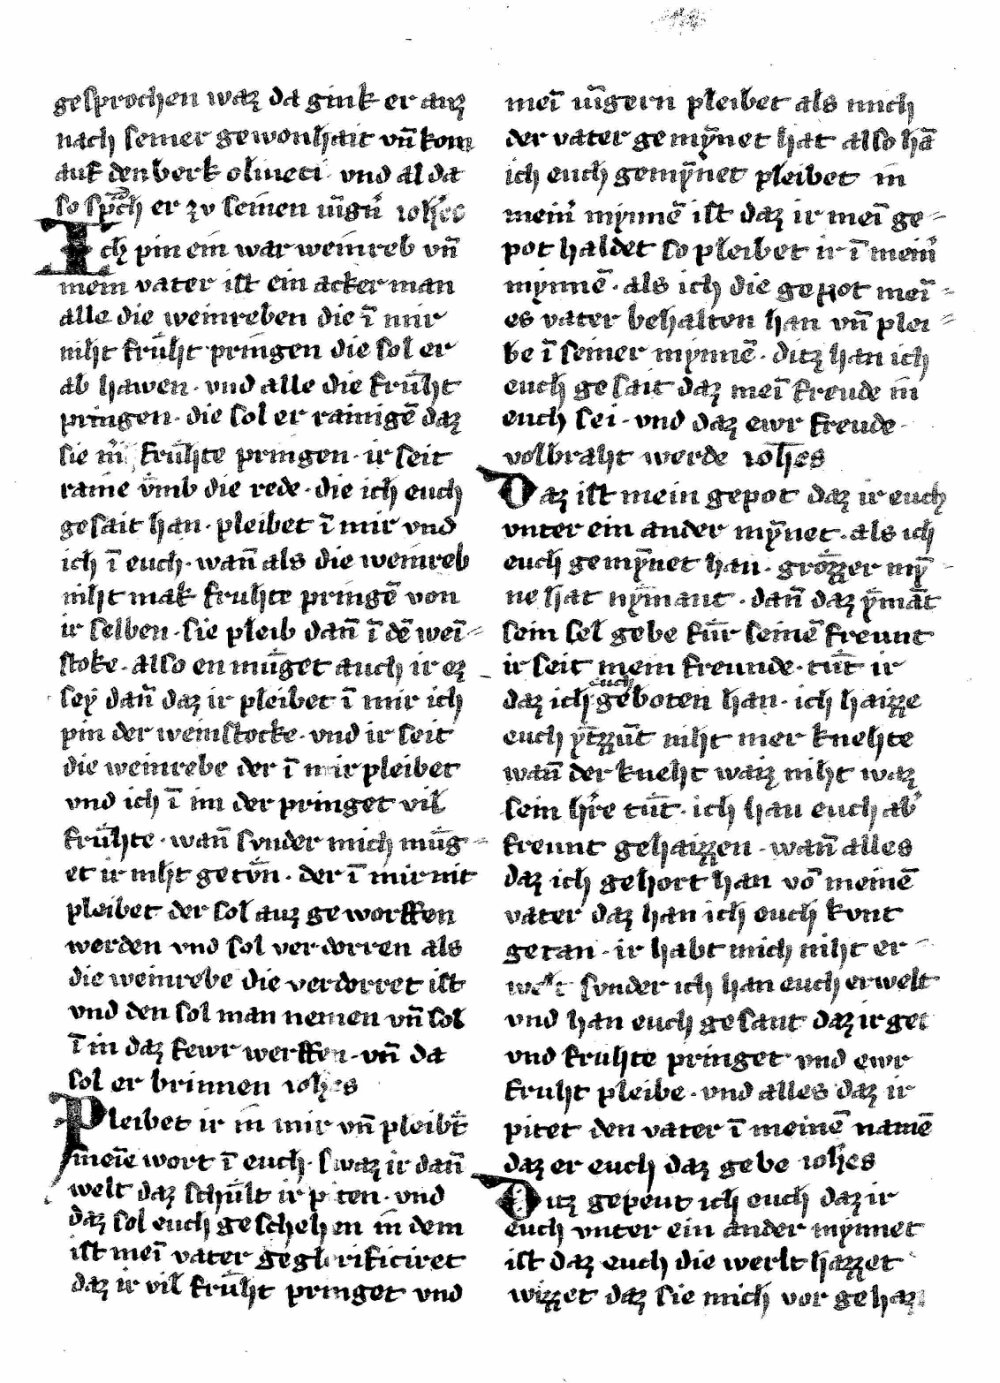 gesprochen waz da gink er auz
nach seiner gewonhait vn̄ kom
auf den berk oliueti · vnd al da
so sp̄ch er zv seinen iūg'n ioh̄es
Ich pin ein war weinreb vn̄
mein vater ist ein ackerman
alle die weinreben die ī mir
niht frůht pringen die sol er
ab hawen · vnd alle die frůht
pringen · die sol er rainigē daz
sie m' frůhte pringen · ir seit
raine vmb die rede · die ich euch
gesait han · pleibet ī mir vnd
ich ī euch · wan̄ als die weinreb
niht mak fruhte pringē von
ir selben · sie pleib dan̄ ī dē wei=
stoke · also en můget auch ir ez
seẏ dan̄ daz ir pleibet ī mir ich
pin der weinstocke · vnd ir seit
die weinrebe der ī mir pleibet
vnd ich ī im der pringet vil
frůhte · wan̄ svnder mich můg=
et ir niht getůn · der ī mir nit
pleibet der sol auz geworffen
werden vnd sol verdorren als
die weinrebe die verdorret ist
vnd den sol man nemen vn̄ sol
ī in daz fewr werffen · vn̄ da
sol er brinnen ioh̄es
Pleibet ir in mir vn̄ pleibt
meīe wort ī euch · swaz ir dan̄
welt daz schůlt ir piten · vnd
daz sol euch geschehen in dem
ist meī vater geglorificiret
daz ir vil frůht pringet vnd
meī iūgern pleibet als mich
der vater gemẏnet hat also hā
ich euch gemẏnet pleibet in
mein' mẏnnē ist daz ir meī ge=
pot haldet so pleibet ir ī mein'
mẏnnē · als ich die gepot meī=
es vater behalten han vn̄ plei=
be ī seiner mẏnnē · ditz han ich
euch gesait daz meī freude in
euch sei · vnd daz ewr freude ·
volbraht werde ioh̄es
Daz ist mein gepot daz ir euch
vnter ein ander mẏnet · als ich
euch gemẏnet han · grözzer mẏ=
ne hat nẏmant · dan̄ daz ẏmāt
sein sel gebe für seinē freunt
ir seit mein freunde · tůt ir
daz ich euch geboten han · ich haizze
euch ẏtzzůt niht mer knehte
wan̄ der kneht waiz niht waz
sein h're tůt · ich han euch ab'
freunt gehaizzen · wan̄ alles
daz ich gehort han vō meinē
vater daz han ich euch kvnt
getan · ir habt mich niht er=
welt svnder ich han euch erwelt
vnd han euch gesant daz ir get
vnd fruhte pringet vnd ewr
fruht pleibe · vnd alles daz ir
pitet den vater ī meinē namē
daz er euch daz gebe ioh̄es
Ditz gepeut ich euch daz ir
euch vnter ein ander mẏnnet
ist daz euch die werlt hazzet
wizzet daz sie mich vor gehaz